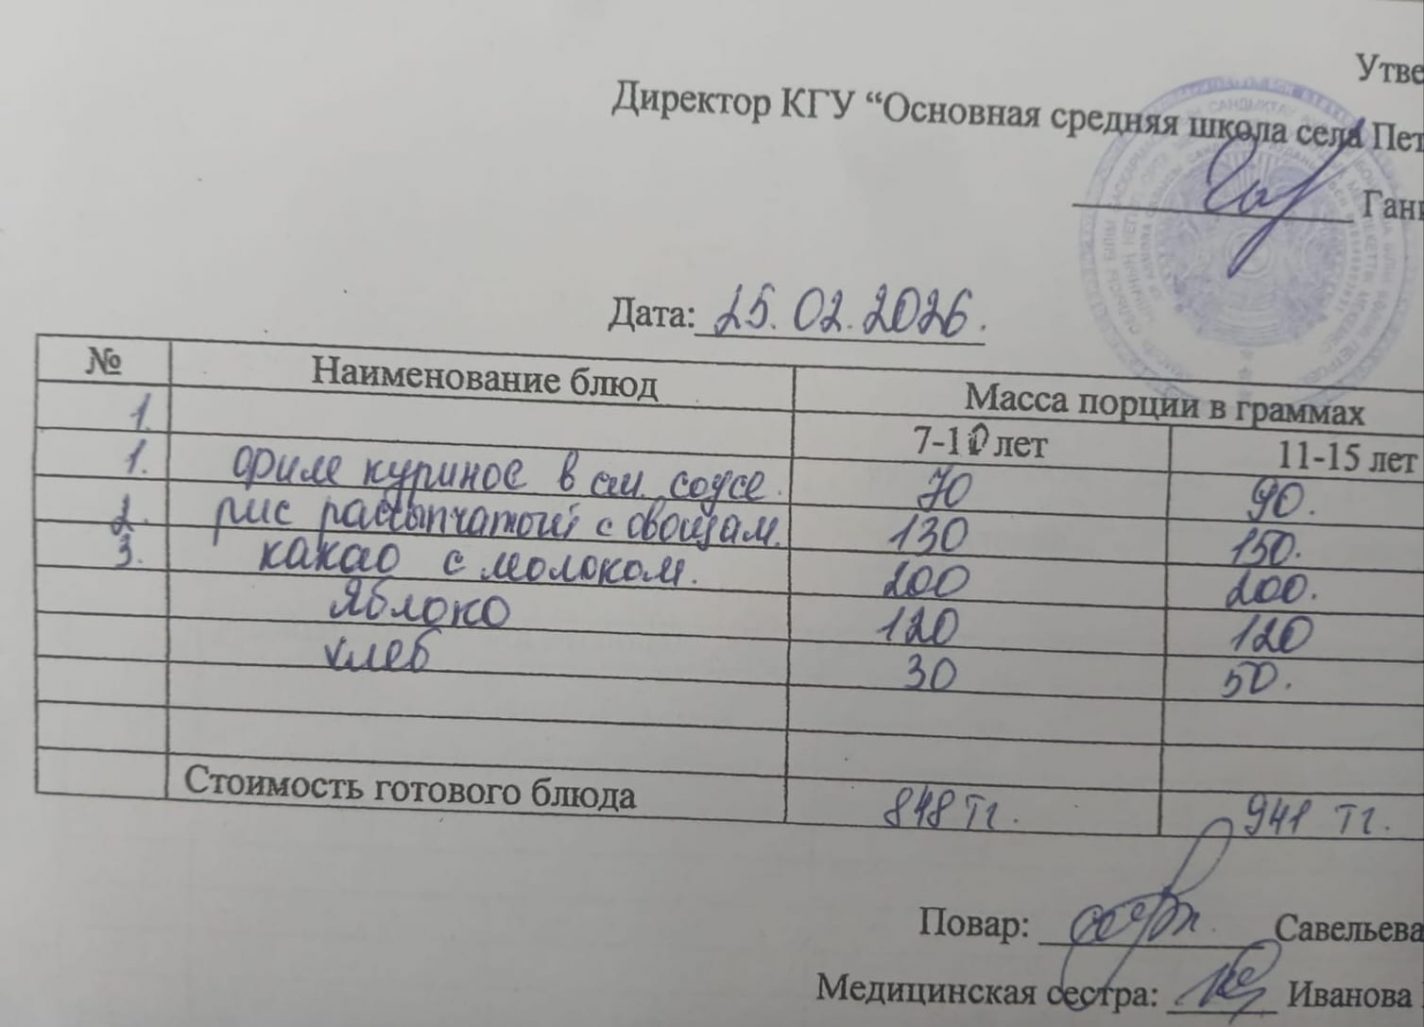 Утве
Директор КГУ “Основная средняя школа села Пет
Ган
Дата: 25.02.2026.
№ Наименование блюд Масса порции в граммах
1. 7-10 лет 11-15 лет
1. филе куриное в см. соусе. 70 90.
2. рис рассыпчатый с овощам. 130 150.
3. какао с молоком. 200 200.
Яблоко 120 120
хлеб 30 50.
Стоимость готового блюда 848 тг. 941 тг.
Повар: Савельева
Медицинская сестра: Иванова